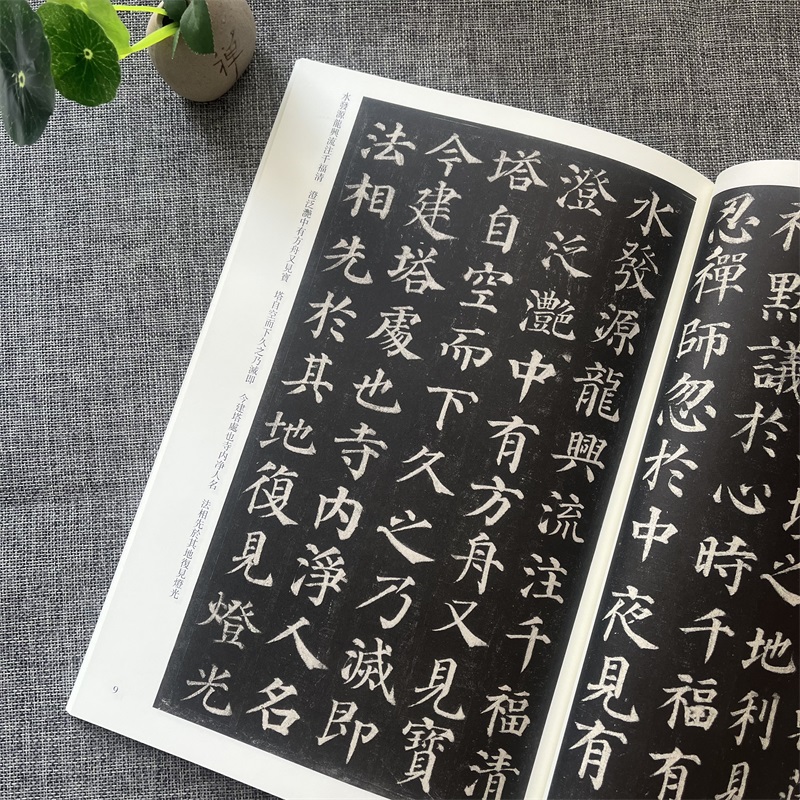 之地利
默議於心時千福有
忍禪師忽於中夜見有
水發源龍興流注千福清
澄泛灧中有方舟又見寶
塔自空而下久之乃滅即
今建塔處也寺內淨人名
法相先於其地復見燈光
水發源龍興流注千福清　澄泛灧中有方舟又見寶　塔自空而下久之乃滅即　今建塔處也寺內淨人名　法相先於其地復見燈光
9
禪